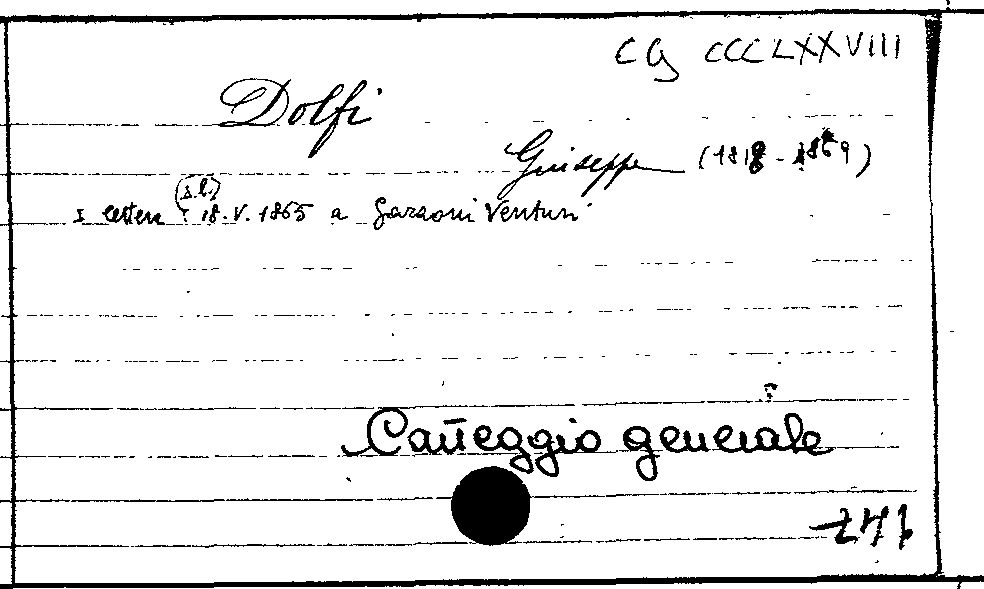 CG CCCLXXVIII
Dolfi
Giuseppe (1818-1869)
(s.l.)
1 lettera 18.V.1865 a Garzoni Venturi
Carteggio generale